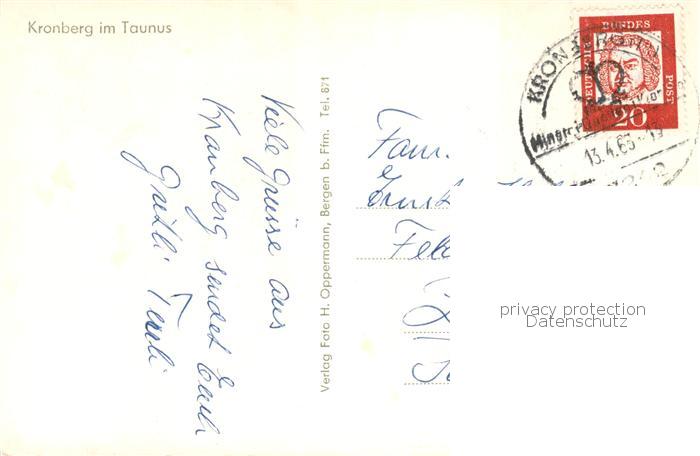 Kronberg im Taunus
Viele Grüsse aus
Kronberg sendet Euch
Verlag Foto H. Oppermann, Bergen b. Ffm. Tel. 871
Fam.
DEUTSCHE
BUNDES
POST
20
KRONBERG
13.4.65
privacy protection
Datenschutz